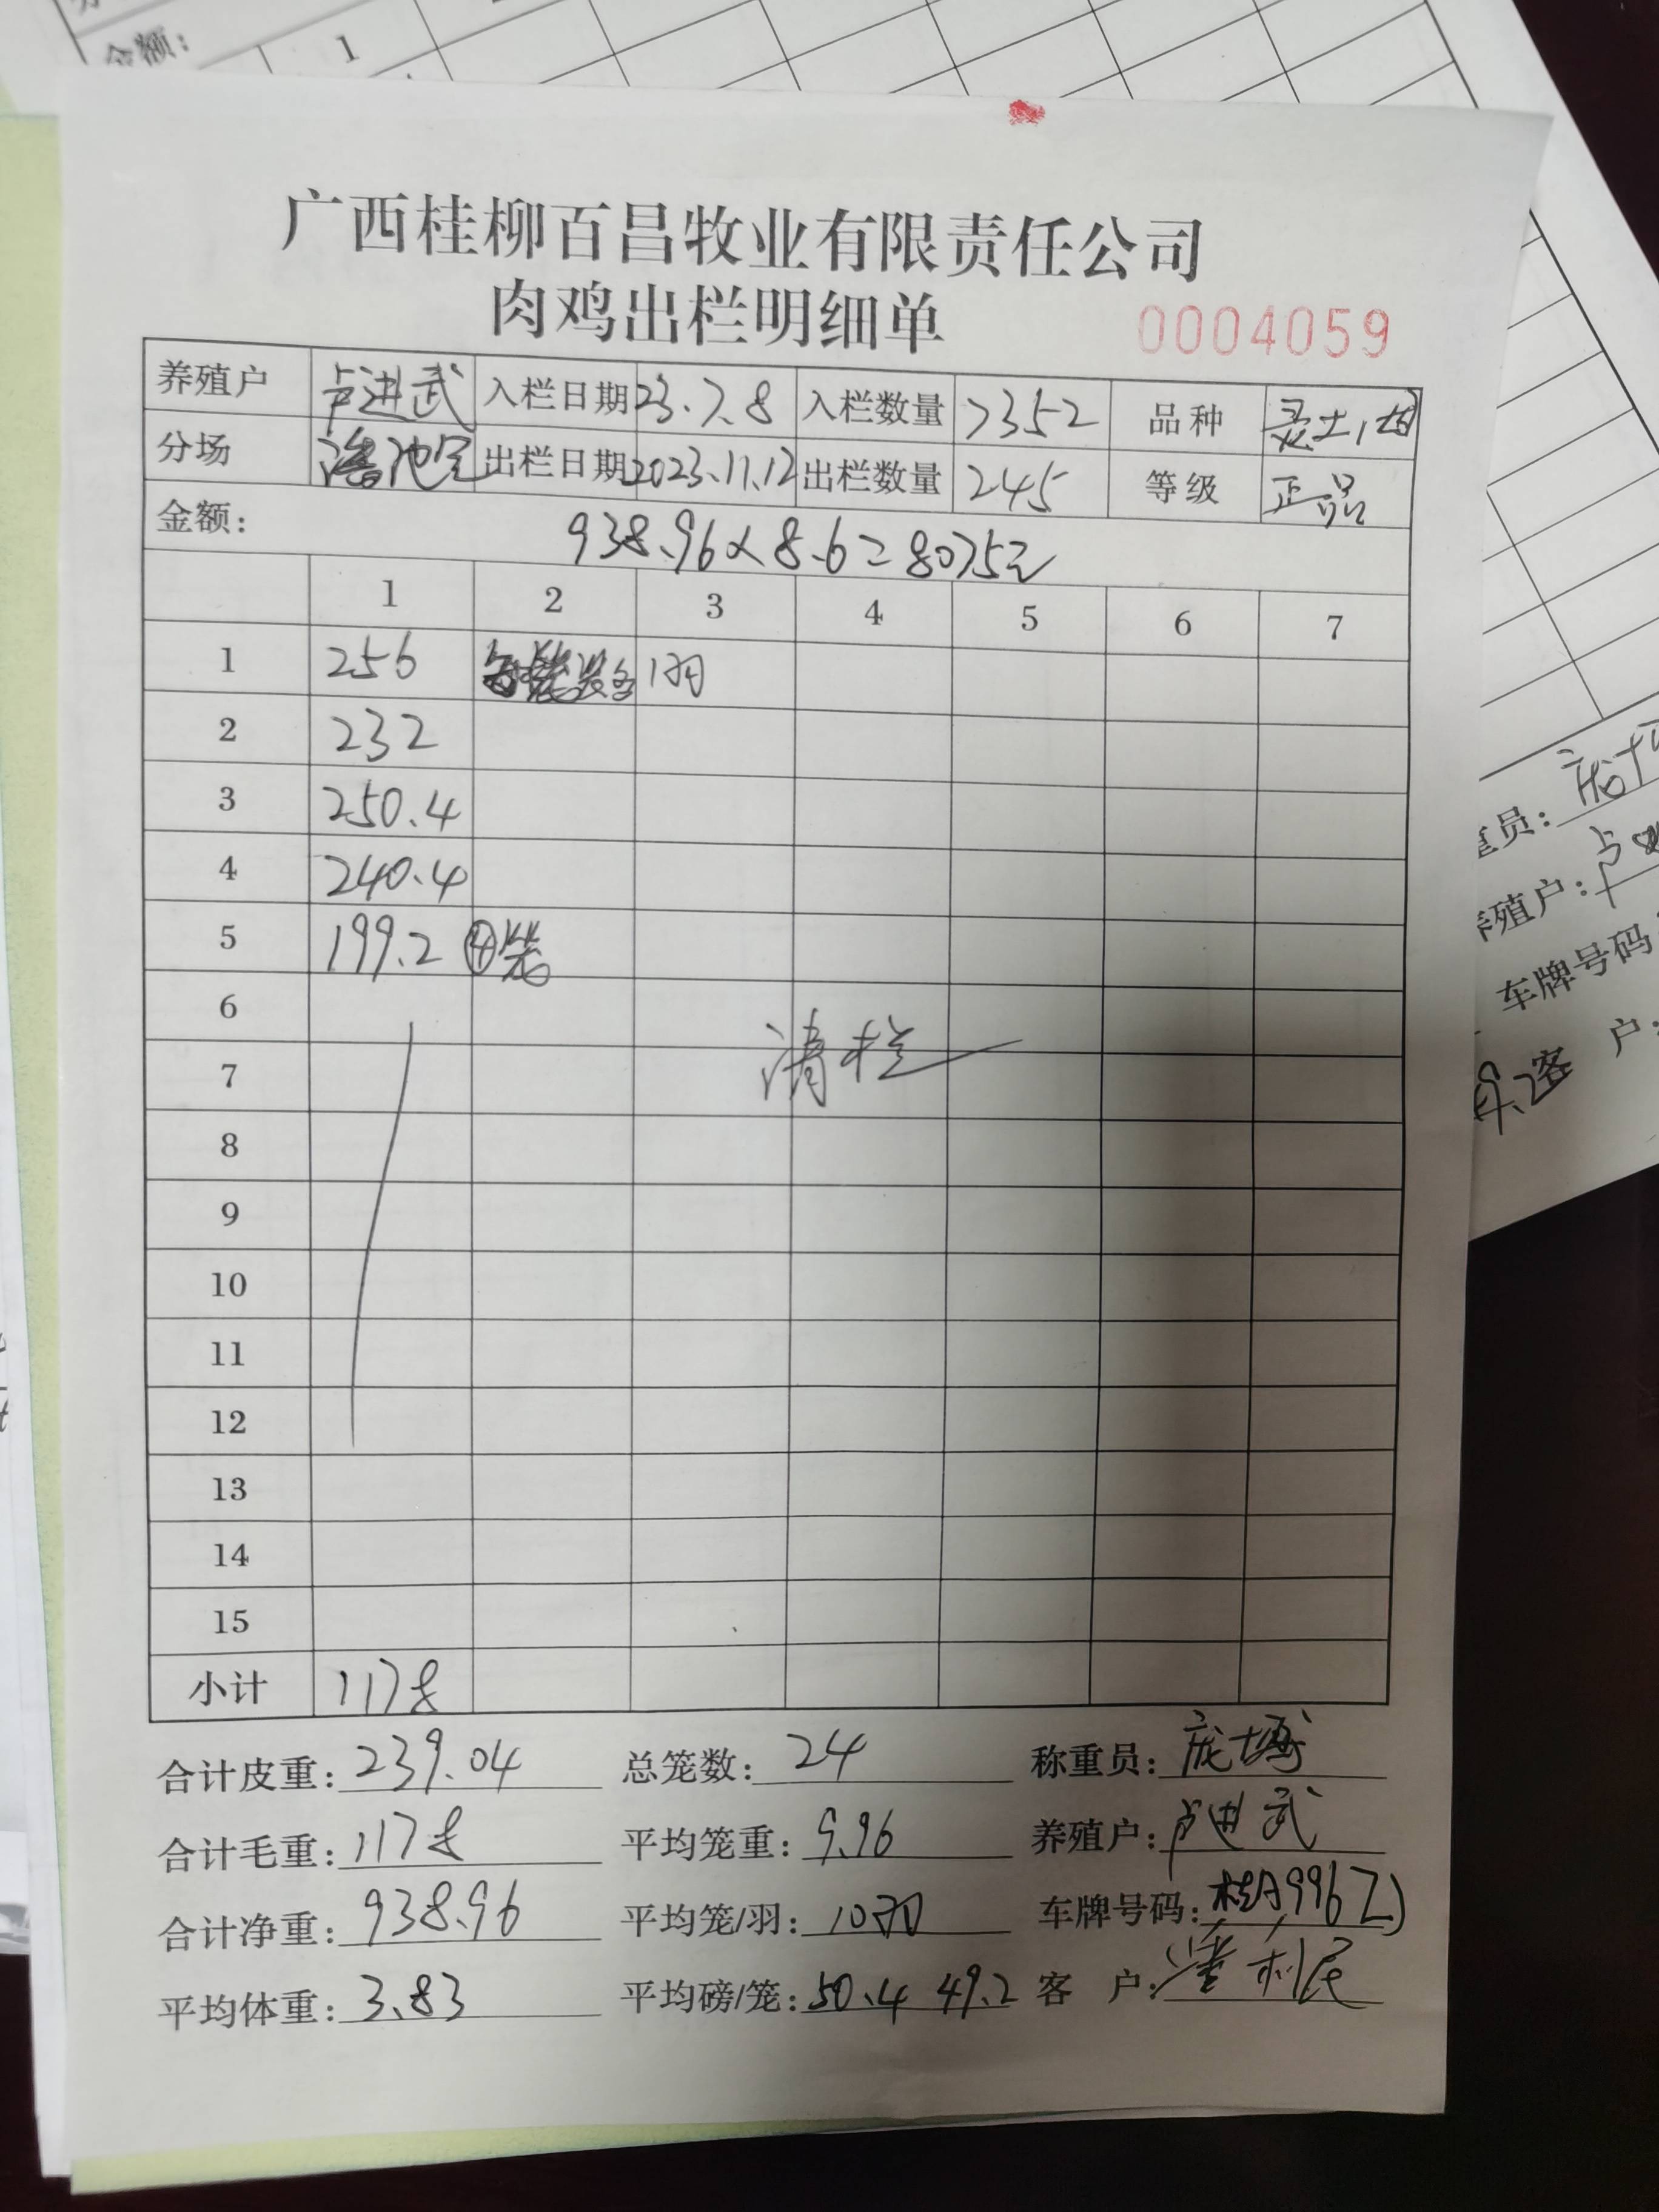 金额： 1
广西桂柳百昌牧业有限责任公司
肉鸡出栏明细单 0004059
养殖户 卢进武 入栏日期 23.7.8 入栏数量 7352 品种
分场 出栏日期 2023.11.12 出栏数量 245 等级 正品
金额： 938.96×8.6=8075元
1 2 3 4 5 6 7
1 256 1羽
2 232
3 250.4
4 240.4
5 199.2 ④笼
6
清栏
7
8
9
10
11
12
13
14
15
小计 1178
合计皮重：239.04 总笼数：24 称重员：
合计毛重：1178 平均笼重：9.96 养殖户：卢进武
合计净重：938.96 平均笼/羽：10羽 车牌号码：桂A996ZJ
平均体重：3.83 平均磅/笼：50.4 49.2 客 户：
重员：
养殖户：
车牌号码
49.2 客 户：